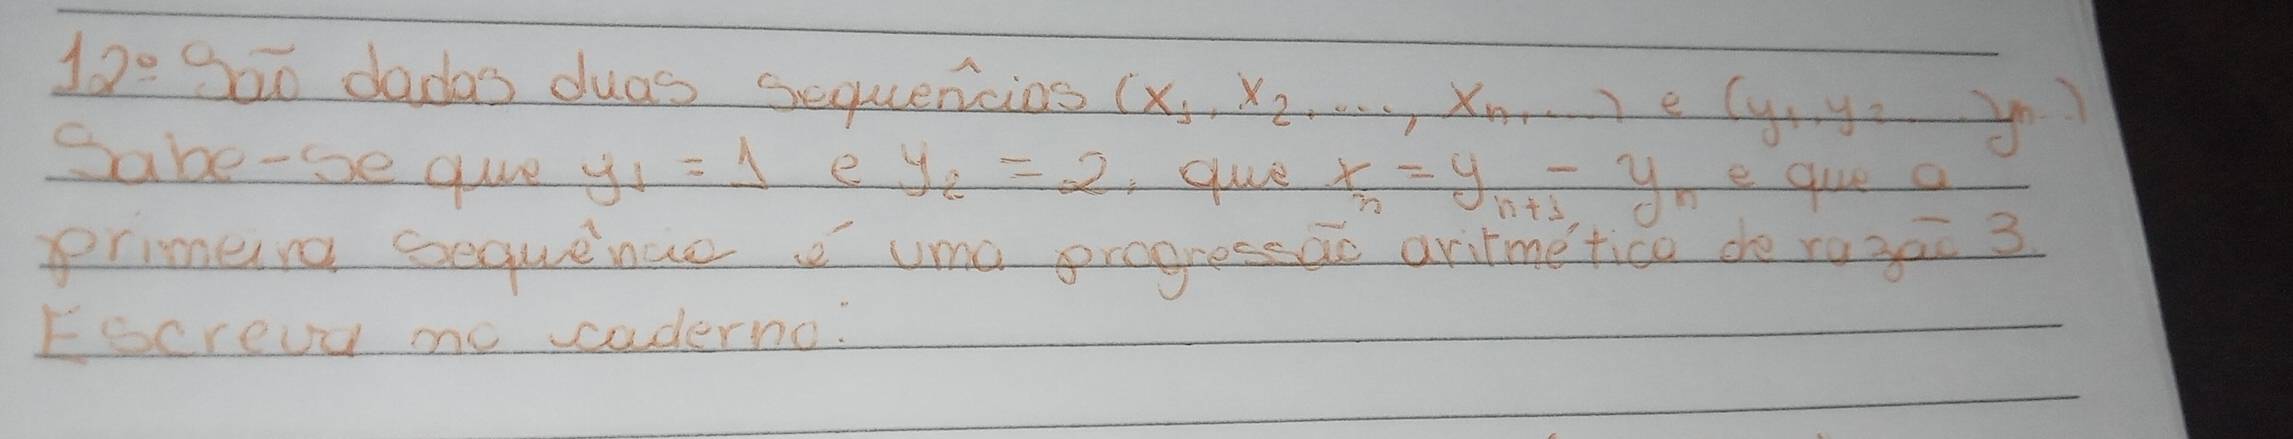 12º São dadas duas sequências (x₁, x₂, ..., xₙ, ...) e (y₁, y₂ ... yₙ..)
Sabe-se que y₁ = 1 e y₂ = 2, que xₙ = yₙ₊₁ - yₙ e que a
primeira sequência é uma progressão aritmética de razão 3.
Escreva no caderno: